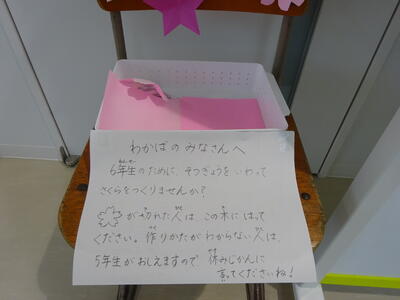 わかばのみなさんへ
6年生のために、そつぎょうをいわって
さくらをつくりませんか?
が切れた人は、この木にはって
ください。作りかたがわからない人は、
5年生がおしえますので休みじかんに
言ってくださいね!